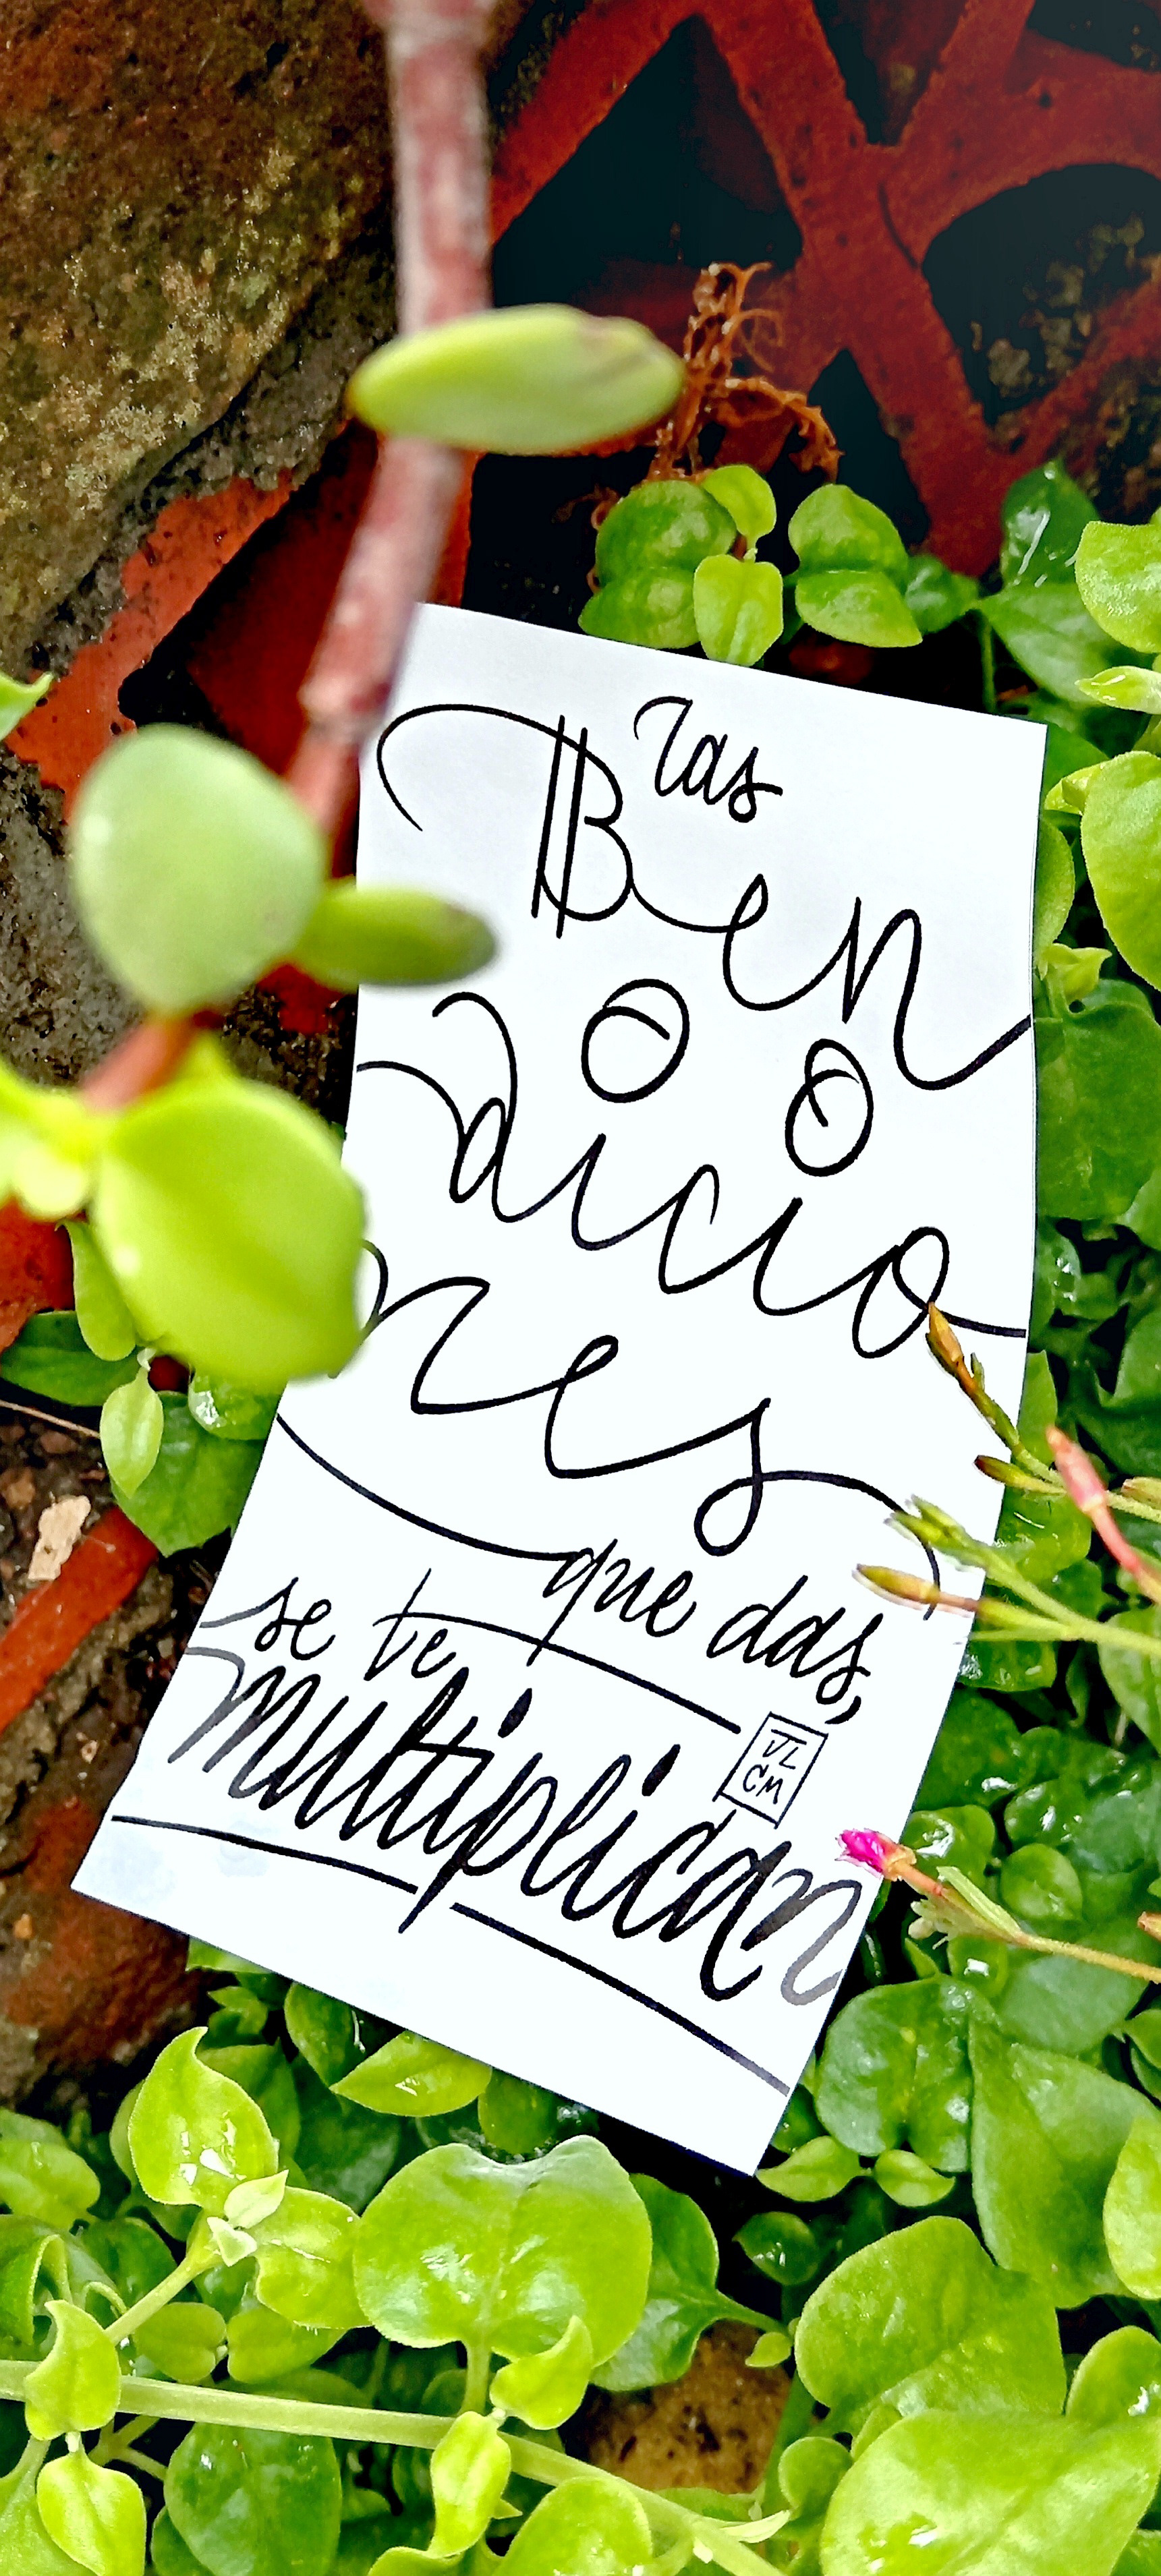 las
Ben
dicio
nes
que das,
se te
multiplican
JL
CM